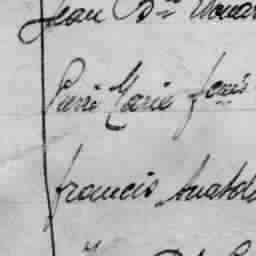 Jean Bte
Pierre Marie fçois
francis Anatole